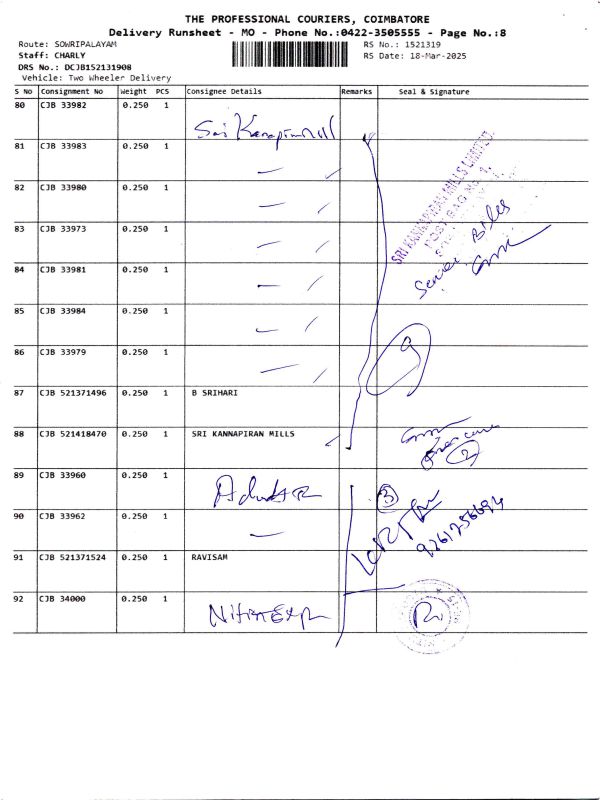 THE PROFESSIONAL COURIERS, COIMBATORE
Delivery Runsheet - MO - Phone No.:0422-3505555 - Page No.:8
Route: SOWRIPALAYAM
RS No.: 1521319
Staff: CHARLY
RS Date: 18-Mar-2025
DRS No.: DCJB152131908
Vehicle: Two Wheeler Delivery
S No Consignment No Weight PCS Consignee Details Remarks Seal & Signature
80 CJB 33982 0.250 1
81 CJB 33983 0.250 1
82 CJB 33980 0.250 1
83 CJB 33973 0.250 1
84 CJB 33981 0.250 1
85 CJB 33984 0.250 1
86 CJB 33979 0.250 1
87 CJB 521371496 0.250 1 B SRIHARI
88 CJB 521418470 0.250 1 SRI KANNAPIRAN MILLS
89 CJB 33960 0.250 1
90 CJB 33962 0.250 1
91 CJB 521371524 0.250 1 RAVISAM
92 CJB 34000 0.250 1
SRI KANNAPIRAN MILLS LIMITED
POST BAG No. 1,
9
2
3
9261756694